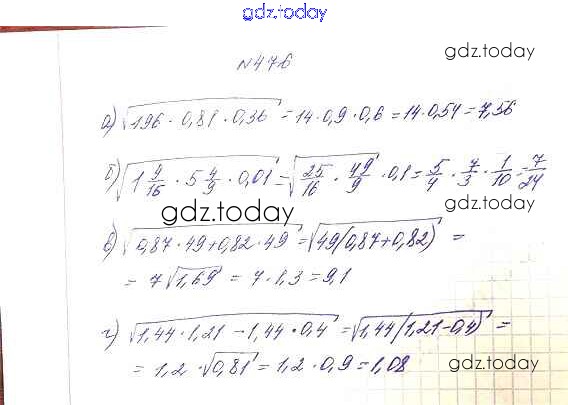 gdz.today
№476
gdz.today
а) √196 · 0,81 · 0,36 = 14 · 0,9 · 0,6 = 14 · 0,54 = 7,56
б) √1 9/16 · 5 4/9 · 0,01 = √25/16 · 49/9 · 0,1 = 5/4 · 7/3 · 1/10 = 7/24
gdz.today
gdz.today
в) √0,87 · 49 + 0,82 · 49 = √49(0,87+0,82) =
= 7√1,69 = 7 · 1,3 = 9,1
г) √1,44 · 1,21 - 1,44 · 0,4 = √1,44(1,21-0,4) =
= 1,2 · √0,81 = 1,2 · 0,9 = 1,08
gdz.today